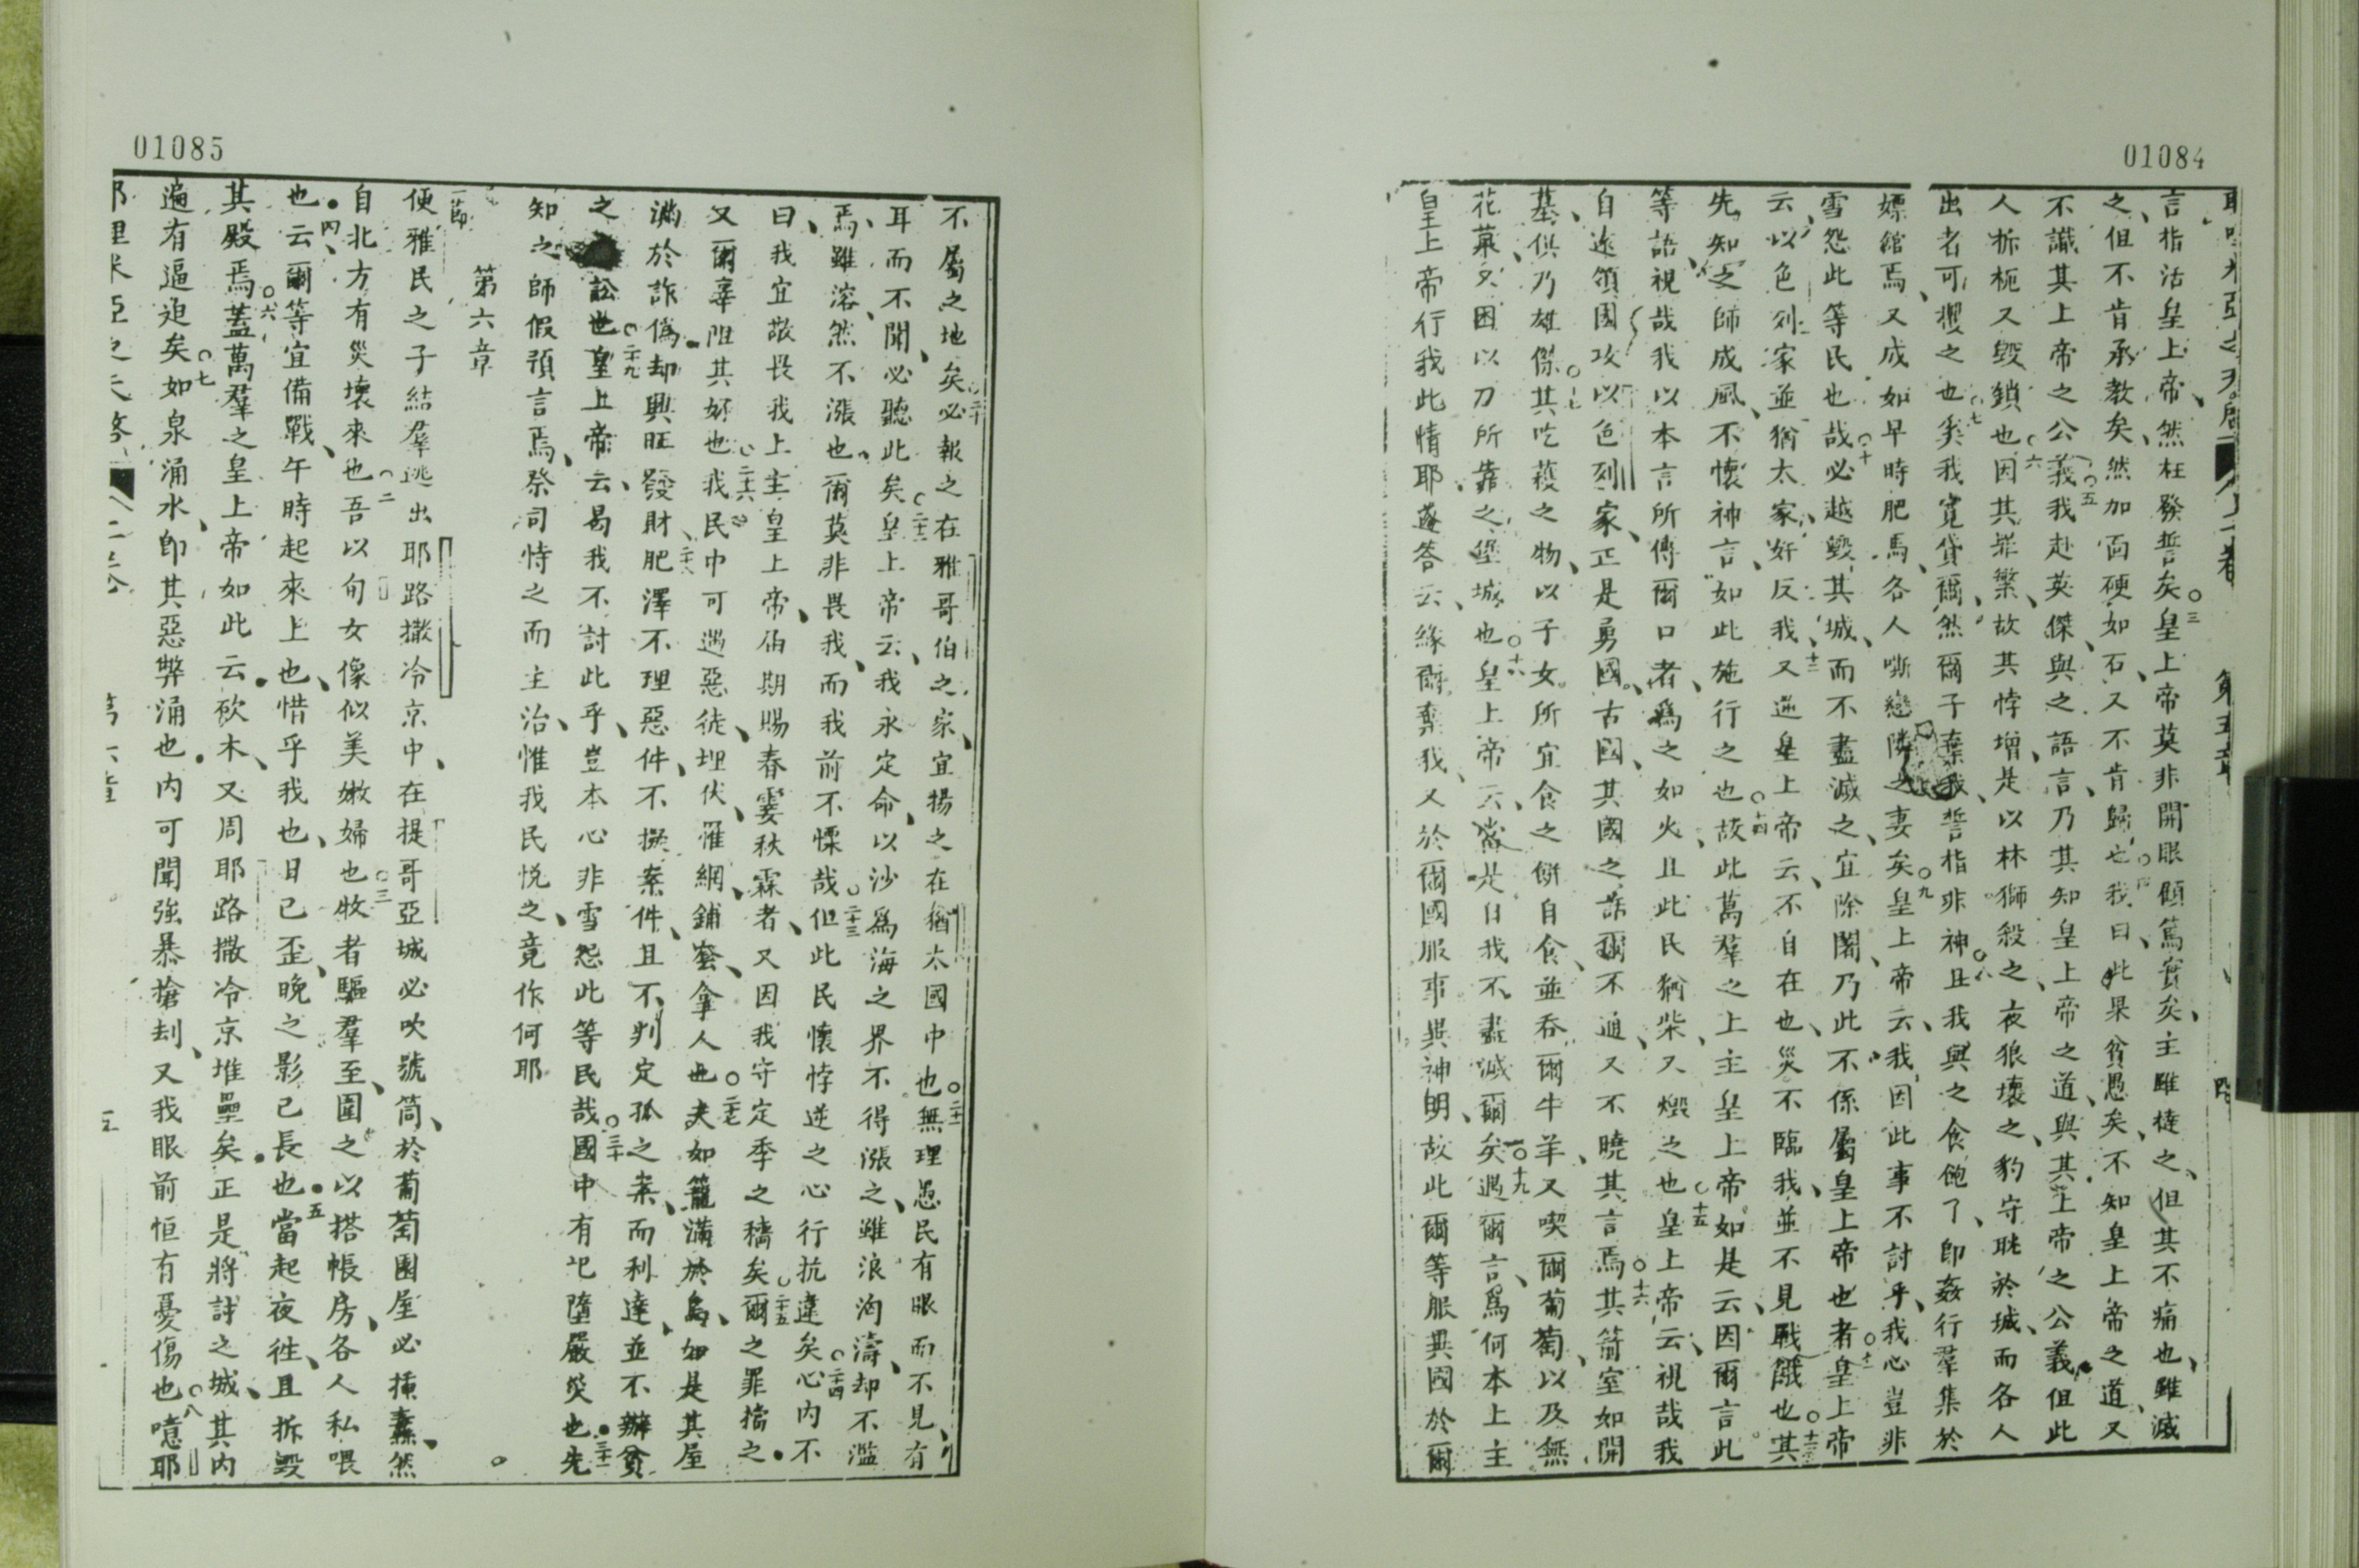 01084
言指活皇上帝然枉發誓矣○三皇上帝莫非開眼顧篤實矣主雖撻之但其不痛也雖滅
之但不肯承教矣然加面硬如石又不肯歸也○四我曰此果貧愚矣不知皇上帝之道又
不識其上帝之公義○五我赴英傑與之語言乃其知皇上帝之道與其上帝之公義但此
人拆枙又毀鎖也○六因其罪繁故其悖增是以林獅殺之夜狼壞之豹守眈於城而各人
出者可攫之也矣○七我寬貸爾然爾子棄我誓指非神○八且我與之食飽了卽姦行羣集於
嫖館焉又成如早時肥馬各人嘶戀隣之妻矣○九皇上帝云我因此事不討乎我心豈非
雪怨此等民也哉○十必越毀其城而不盡滅之宜除闍乃此不係屬皇上帝也者○十一皇上帝
云以色列家並猶太家奸反我○十二又逆皇上帝云不自在也災不臨我並不見戰饑也○十三其
先知之師成風不懷神言如此施行之也○十四故此萬羣之上主皇上帝如是云因爾言此
等語視哉我以本言所傳爾口者爲之如火且此民猶柴又燬之也○十五皇上帝云視哉我
自遠領國攻以色列家正是勇國古國其國之話爾不通又不曉其言焉○十六其箭室如開
墓俱乃雄傑○十七其吃穫之物以子女所宜食之餅自食並吞爾牛羊又喫爾葡萄以及無
花菓又困以刀所靠之堡城也○十八皇上帝云當是日我不盡滅爾矣○十九遇爾言爲何本上主
皇上帝行我此情耶遂答云緣爾棄我又於爾國服事異神明故此爾等服異國於爾
01085
不屬之地矣○二十必報之在雅哥伯之家宜揚之在猶太國中也○二十一無理愚民有眼而不見有
耳而不聞必聽此矣○二十二皇上帝云我永定命以沙爲海之界不得漲之雖浪洶濤却不濫
焉雖溶然不漲也爾莫非畏我而我前不慄哉○二十三但此民懷悖逆之心行抗違矣○二十四心內不
曰我宜敬畏我上主皇上帝屆期賜春霎秋霖者又因我守定季之穡矣○二十五爾之罪擋之
又爾辜阻其好也○二十六我民中可遇惡徒埋伏羅網鋪套拿人也○二十七夫如籠滿於鳥如是其屋
滿於詐僞却興旺發財○二十八肥澤不理惡件不擬案件且不判定孤之案而利達並不辦貧
之訟也○二十九皇上帝云曷我不討此乎豈本心非雪怨此等民哉○三十國中有圯墮嚴災也○三十一先
知之師假預言焉祭司恃之而主治惟我民悅之竟作何耶
第六章
一節
便雅民之子結羣逃出耶路撒冷京中在提哥亞城必吹號筒於葡萄園屋必揷纛然
自北方有災壞來也○二吾以旬女像似美嫩婦也○三牧者驅羣至圍之以搭帳房各人私喂
也○四云爾等宜備戰午時起來上也惜乎我也日已歪晚之影已長也○五當起夜往且拆毀
其殿焉○六蓋萬羣之皇上帝如此云砍木又周耶路撒冷京堆壘矣正是將討之城其內
遍有逼迫矣○七如泉涌水卽其惡弊涌也內可聞強暴搶刦又我眼前恒有憂傷也○八噫耶